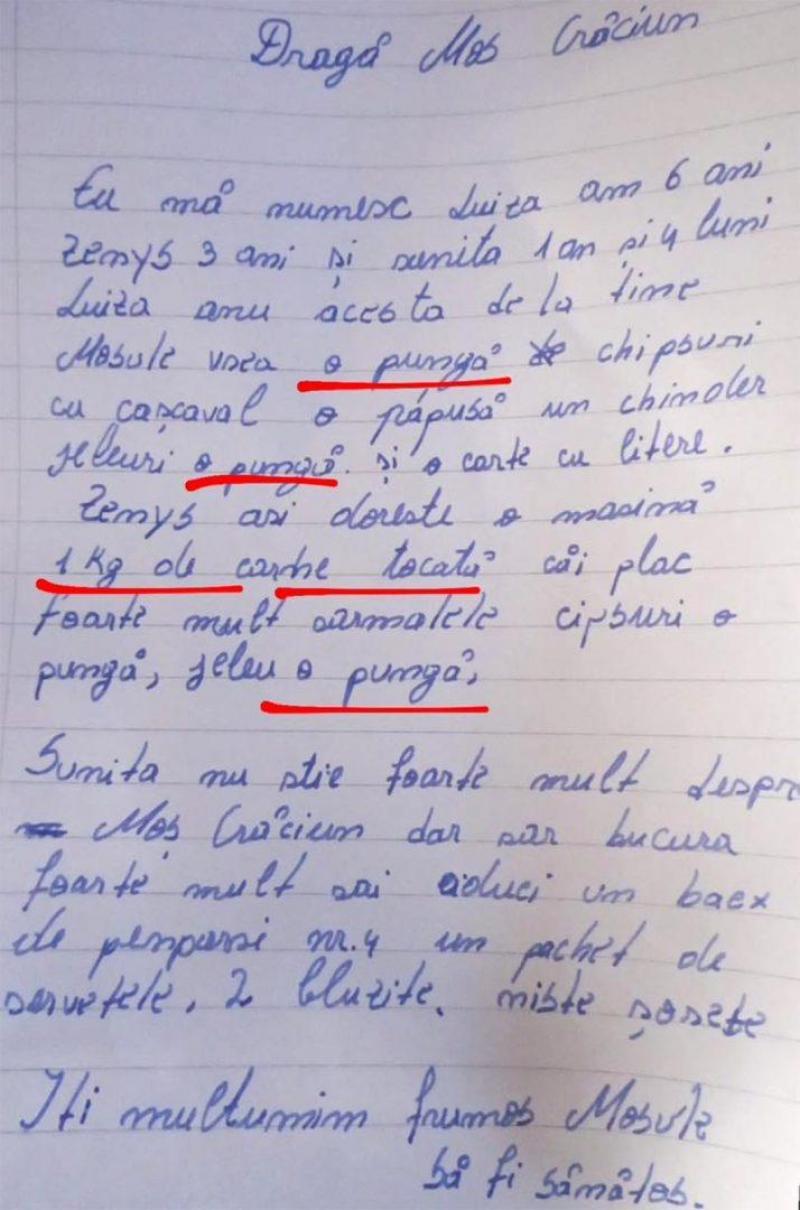 Dragă Mos Crăciun
Eu mă numesc Luiza am 6 ani
Zemys 3 ani și sunita 1 an și 4 luni
Luiza anu acesta de la tine
Mosule vrea o pungă de chipsuri
cu cașcaval o păpusă un chinder
jeleuri o pungă. și o carte cu litere.
Zemys asi doreste o masină
1 kg de carne tocată căi plac
foarte mult sarmalele cipsuri o
pungă, jeleu o pungă,
Sunita nu stie foarte mult despre
Moș Crăciun dar sar bucura
foarte mult sai aduci un baex
de pemparsi nr. 4 un pachet de
servetele, 2 bluzite, niste șosete
Iti multumim frumos Mosule
să fi sănătos.